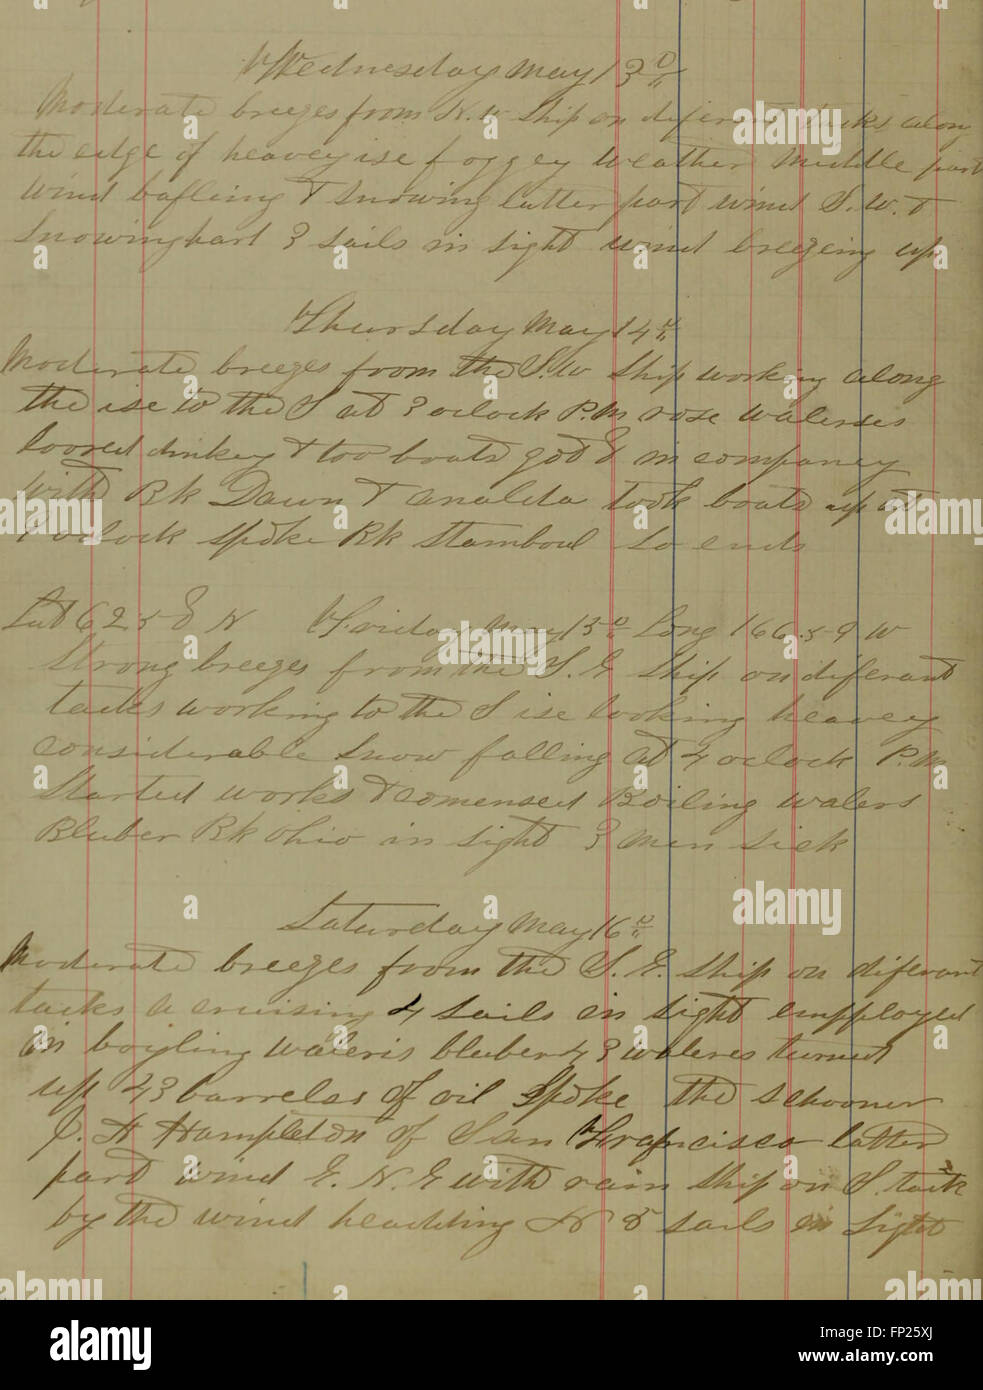 Wednesday May 13th
Moderate breezes from N.W Ship on diferant tacks along
the edge of heavey ise foggey weather Middle part
wind bafling & snowing latter part wind S.W. &
snowing part 3 sails in sight wind breezing up
Thursday May 14th
Moderate breezes from the S.W Ship working along
the ise to the S at 3 oclock P.M rose
loored & too boats got in company
with Bk Dawn & took boats up at
9 oclock spoke Bk Stamboul So ends
Lat 62.58 N Friday May 15th Long 166.59 W
Strong breezes from the S.E Ship on diferant
tacks working to the S ise looking heavey
considerable snow falling at 4 oclock P.M
Started works & comensed Boiling walers
Bluber Bk Ohio in sight 3 men sick
Saturday May 16th
Moderate breezes from the S.E. Ship on diferant
tacks a cruising 4 sails in sight empployed
in boyling waleris bluber & 3 waleres turned
up 43 barreles of oil Spoke the schooner
Hampleton of San Francisco latter
part wind E.N.E with rain Ship on S. tack
by the wind headding N 5 sails in sight
alamy
Image ID: FP25XJ
www.alamy.com